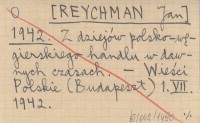 O [REYCHMAN Jan]
1942. Z dziejów polsko-wę-
gierskiego handlu w daw-
nych czasach. — Wieści
Polskie (Budapeszt) 1. VII.
1942.